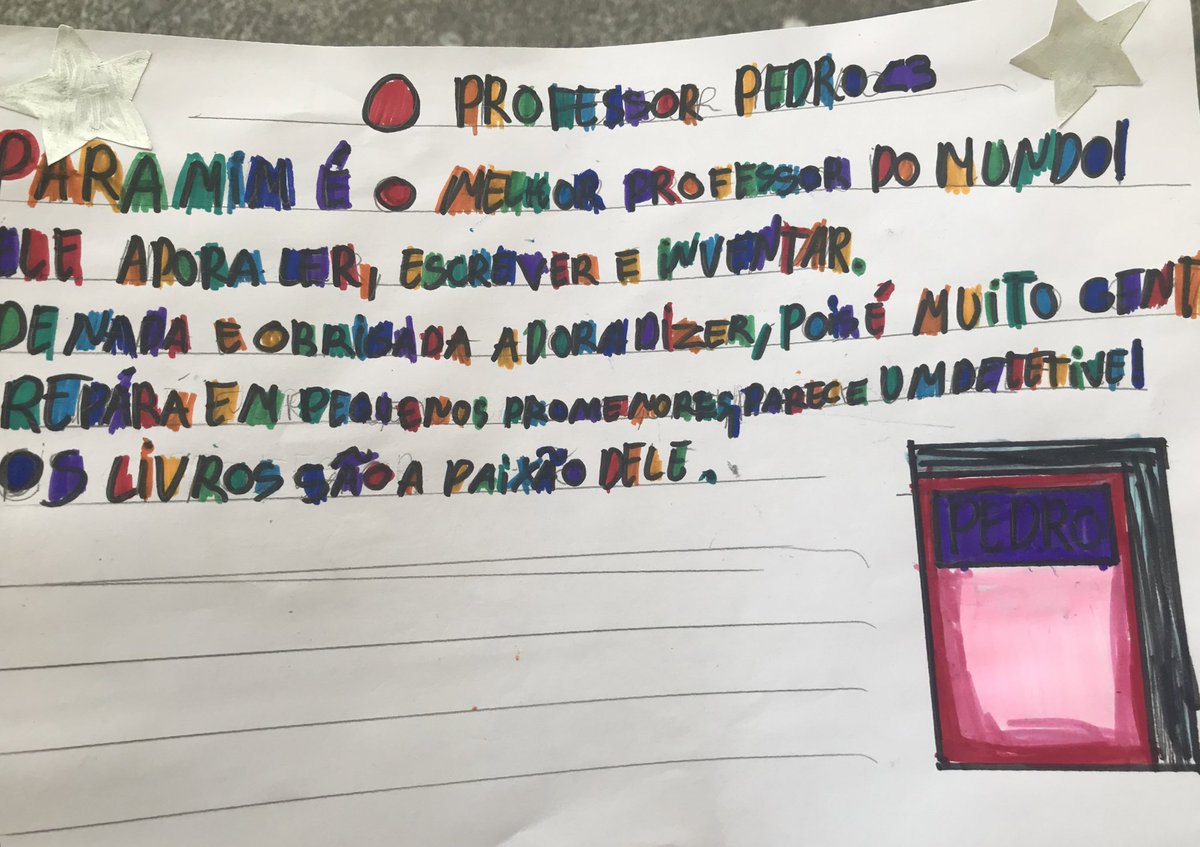 O PROFESSOR PEDRO <3
PARA MIM É O MELHOR PROFESSOR DO MUNDO!
ELE ADORA LER, ESCREVER E INVENTAR.
DE NADA E OBRIGADA ADORA DIZER, POIS É MUITO GENT
REPÁRA EM PEQUENOS PROMENORES, PARECE UM DETETIVE!
OS LIVROS SÃO A PAIXÃO DELE.
PEDRO